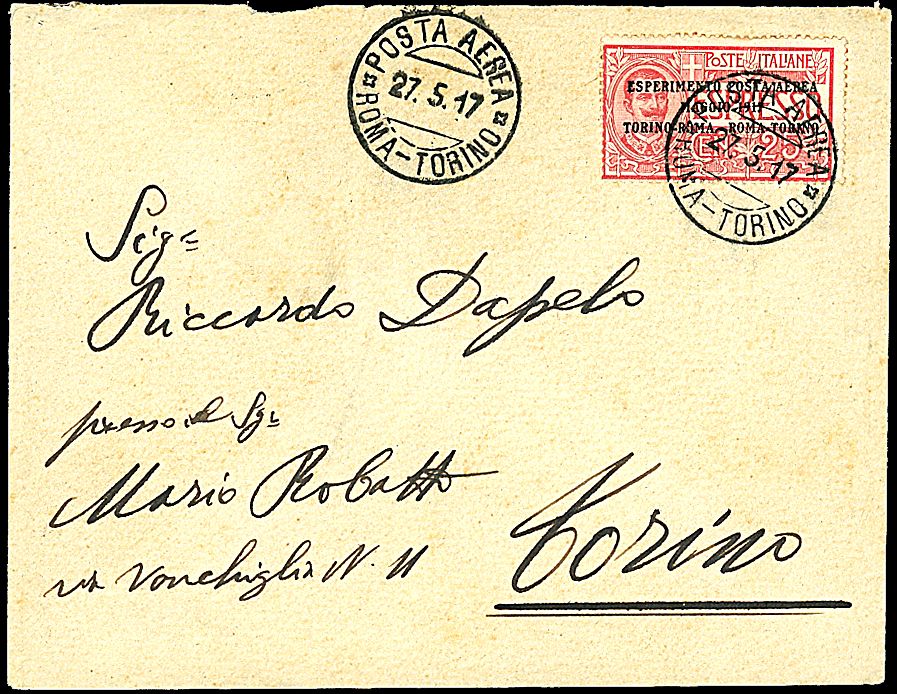 POSTA AEREA
27.5.17
ROMA-TORINO
POSTE ITALIANE
ESPRESSO
ESPERIMENTO POSTA AEREA
MAGGIO 1917
TORINO-ROMA ROMA-TORINO
CENT 25
POSTA AEREA
27.5.17
ROMA-TORINO
Sig=
Riccardo Dapelo
presso il Sig=
Mario Robatto
via Vanchiglia N. 11
Torino